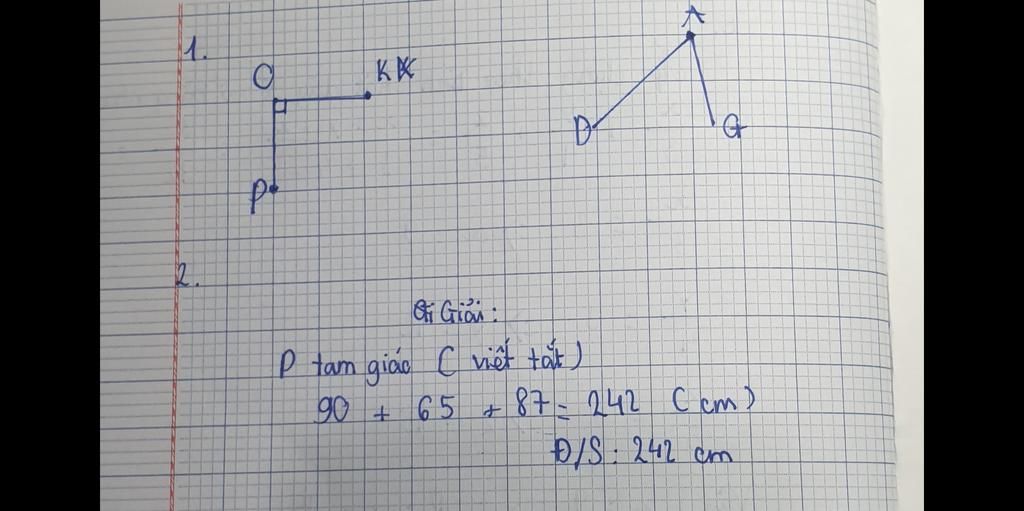 1.
O K A
P D G
2.
Giải:
P tam giác (viết tắt)
90 + 65 + 87 = 242 (cm)
Đ/S: 242 cm